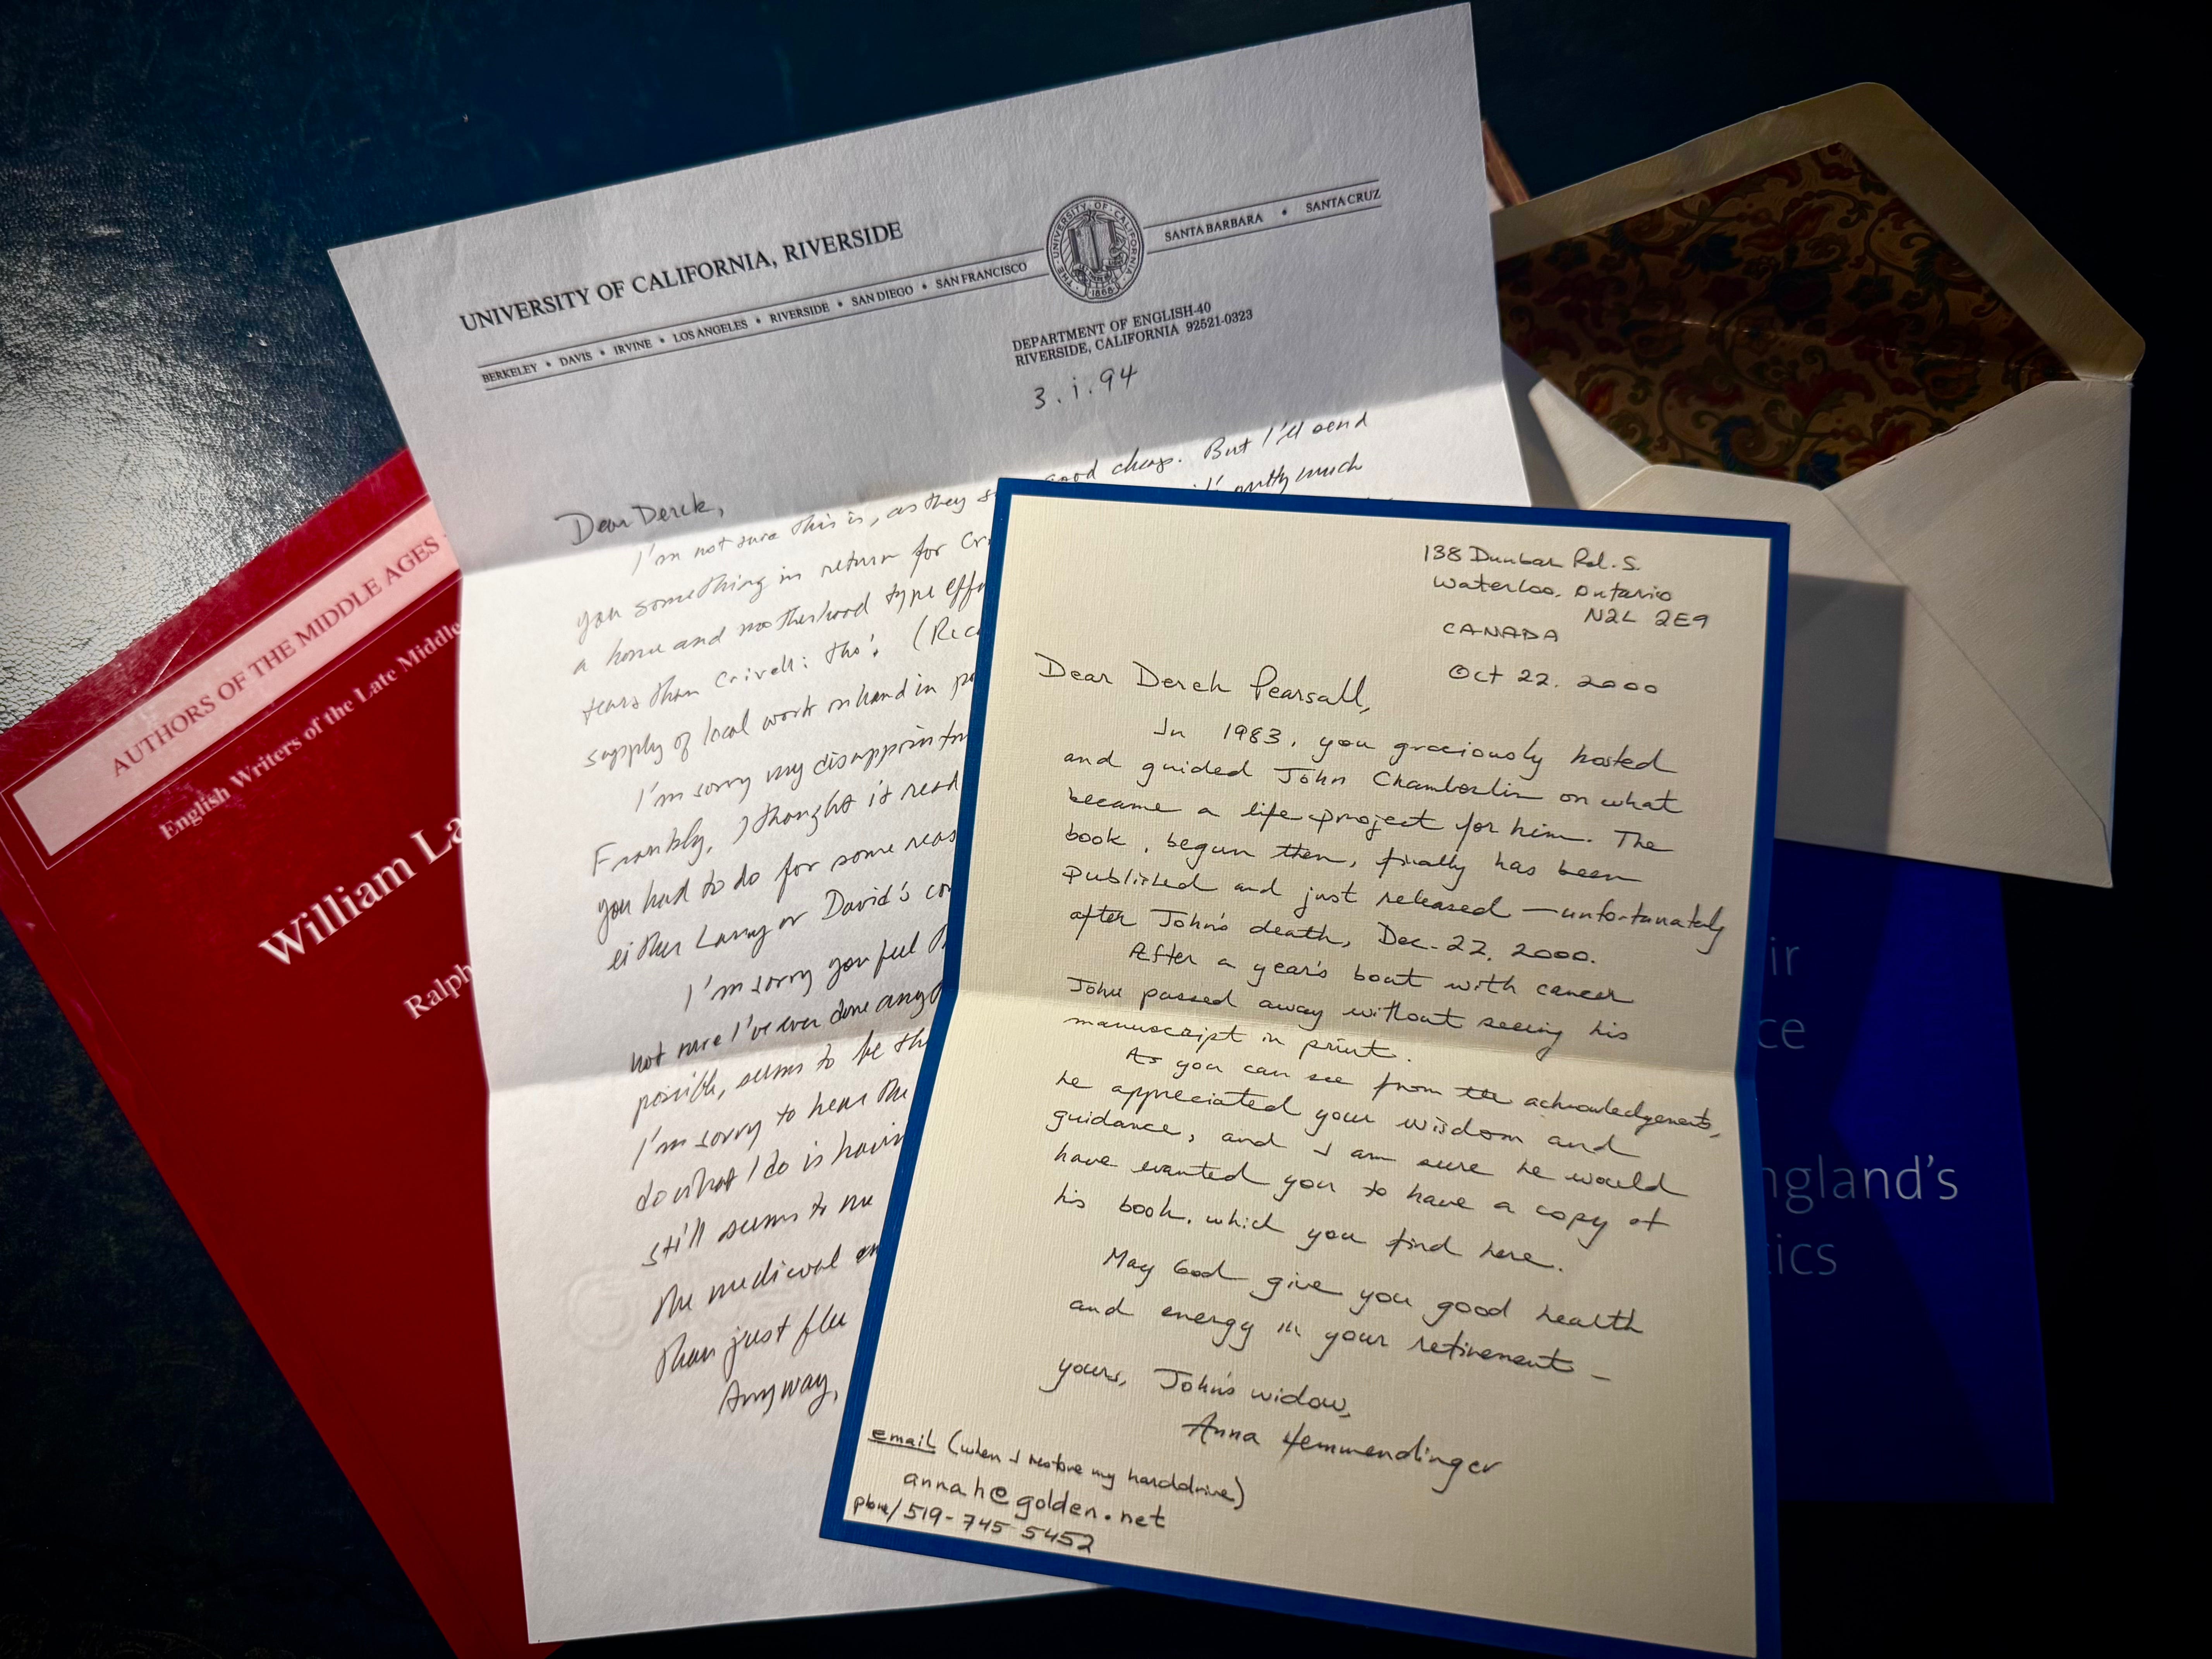 UNIVERSITY OF CALIFORNIA, RIVERSIDE
BERKELEY • DAVIS • IRVINE • LOS ANGELES • RIVERSIDE • SAN DIEGO • SAN FRANCISCO
SANTA BARBARA • SANTA CRUZ
THE UNIVERSITY OF CALIFORNIA 1868
DEPARTMENT OF ENGLISH-40
RIVERSIDE, CALIFORNIA 92521-0323
3.i.94
Dear Derek,
I'm not sure this is, as they s good cheap. But I'll send
you something in return for Cri pretty much
a home and motherhood type effo
tears than Crivelli tho'. (Rec
supply of local work on hand in
I'm sorry my disappointm
Frankly, I thought it read
you had to do for some reas
either Larry or David's co
I'm sorry you feel
not sure I've ever done any
possible, seems to be th
I'm sorry to hear the
do what I do is havin
still seems to me
the medieval en
than just flee
Anyway,
138 Dunbar Rd. S.
Waterloo, Ontario
N2L 2E9
CANADA
Oct 22, 2000
Dear Derek Pearsall,
In 1983, you graciously hosted
and guided John Chamberlin on what
became a life project for him. The
book, begun then, finally has been
published and just released – unfortunately
after John's death, Dec. 22, 2000.
After a year's bout with cancer
John passed away without seeing his
manuscript in print.
As you can see from the acknowledgements,
he appreciated your wisdom and
guidance, and I am sure he would
have wanted you to have a copy of
his book, which you find here.
May God give you good health
and energy in your retirement –
yours, John's widow,
Anna Hemmendinger
email (when I restore my harddrive)
annah@golden.net
phone/519-745-5452
AUTHORS OF THE MIDDLE AGES
English Writers of the Late Middle
William La
Ralph
ir
ce
ngland's
tics